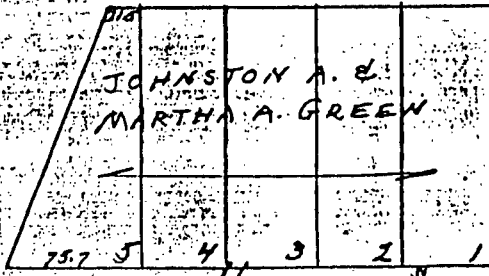 JOHNSTON A. &
MARTHA A. GREEN
75.7 5 4 3 2 1